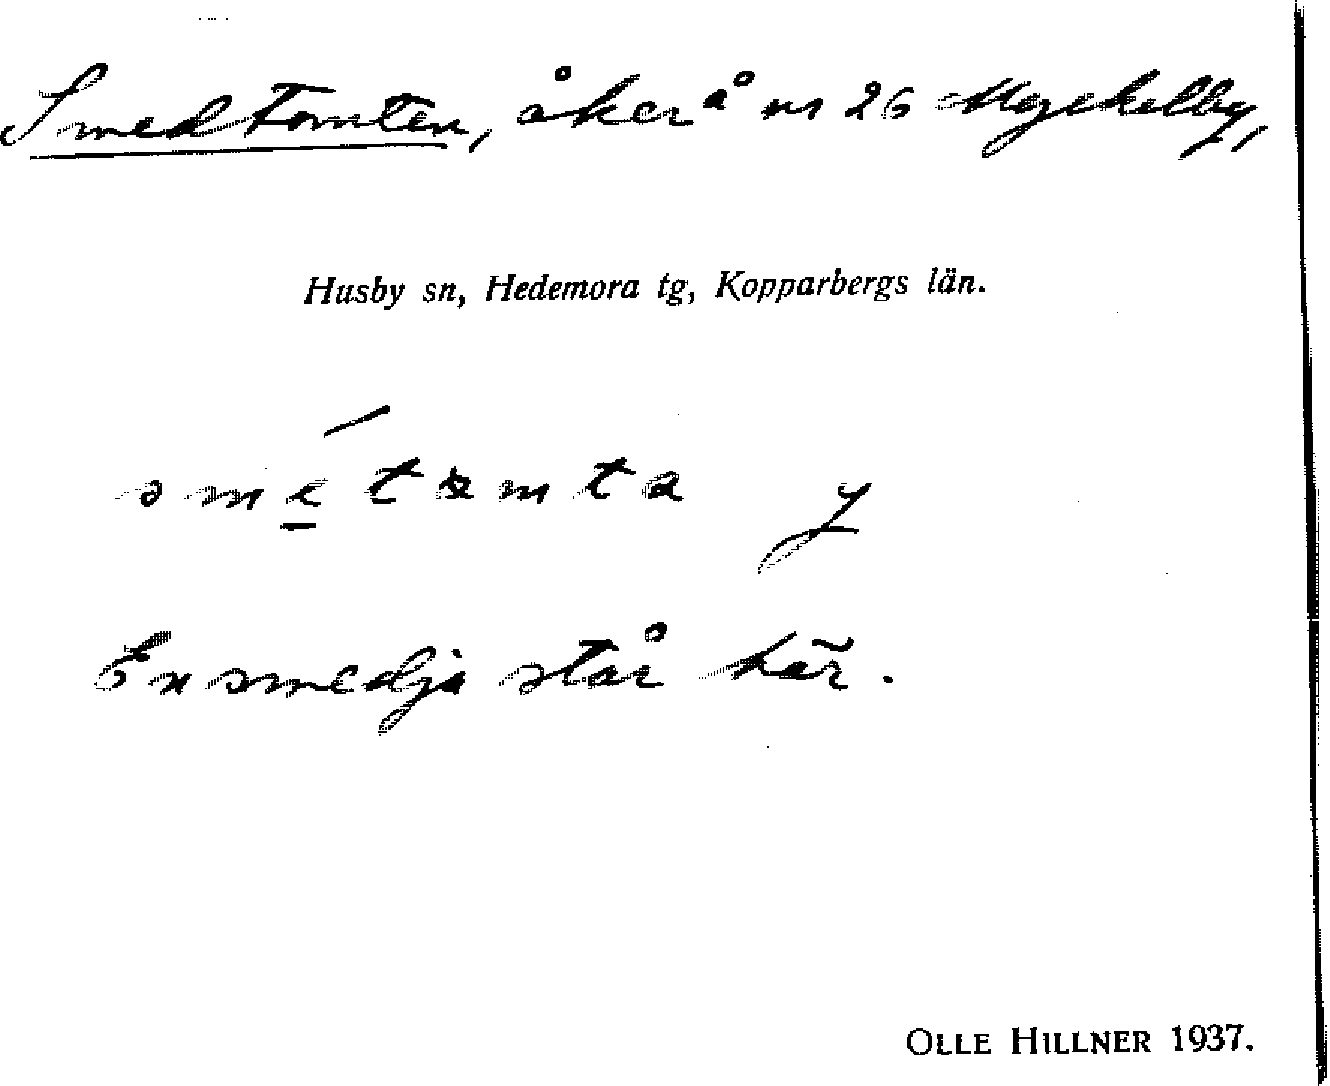 Smedtomten, åker å nr 26 Myckelby,
Husby sn, Hedemora tg, Kopparbergs län.
smetomta
En smedja står här.
OLLE HILLNER 1937.